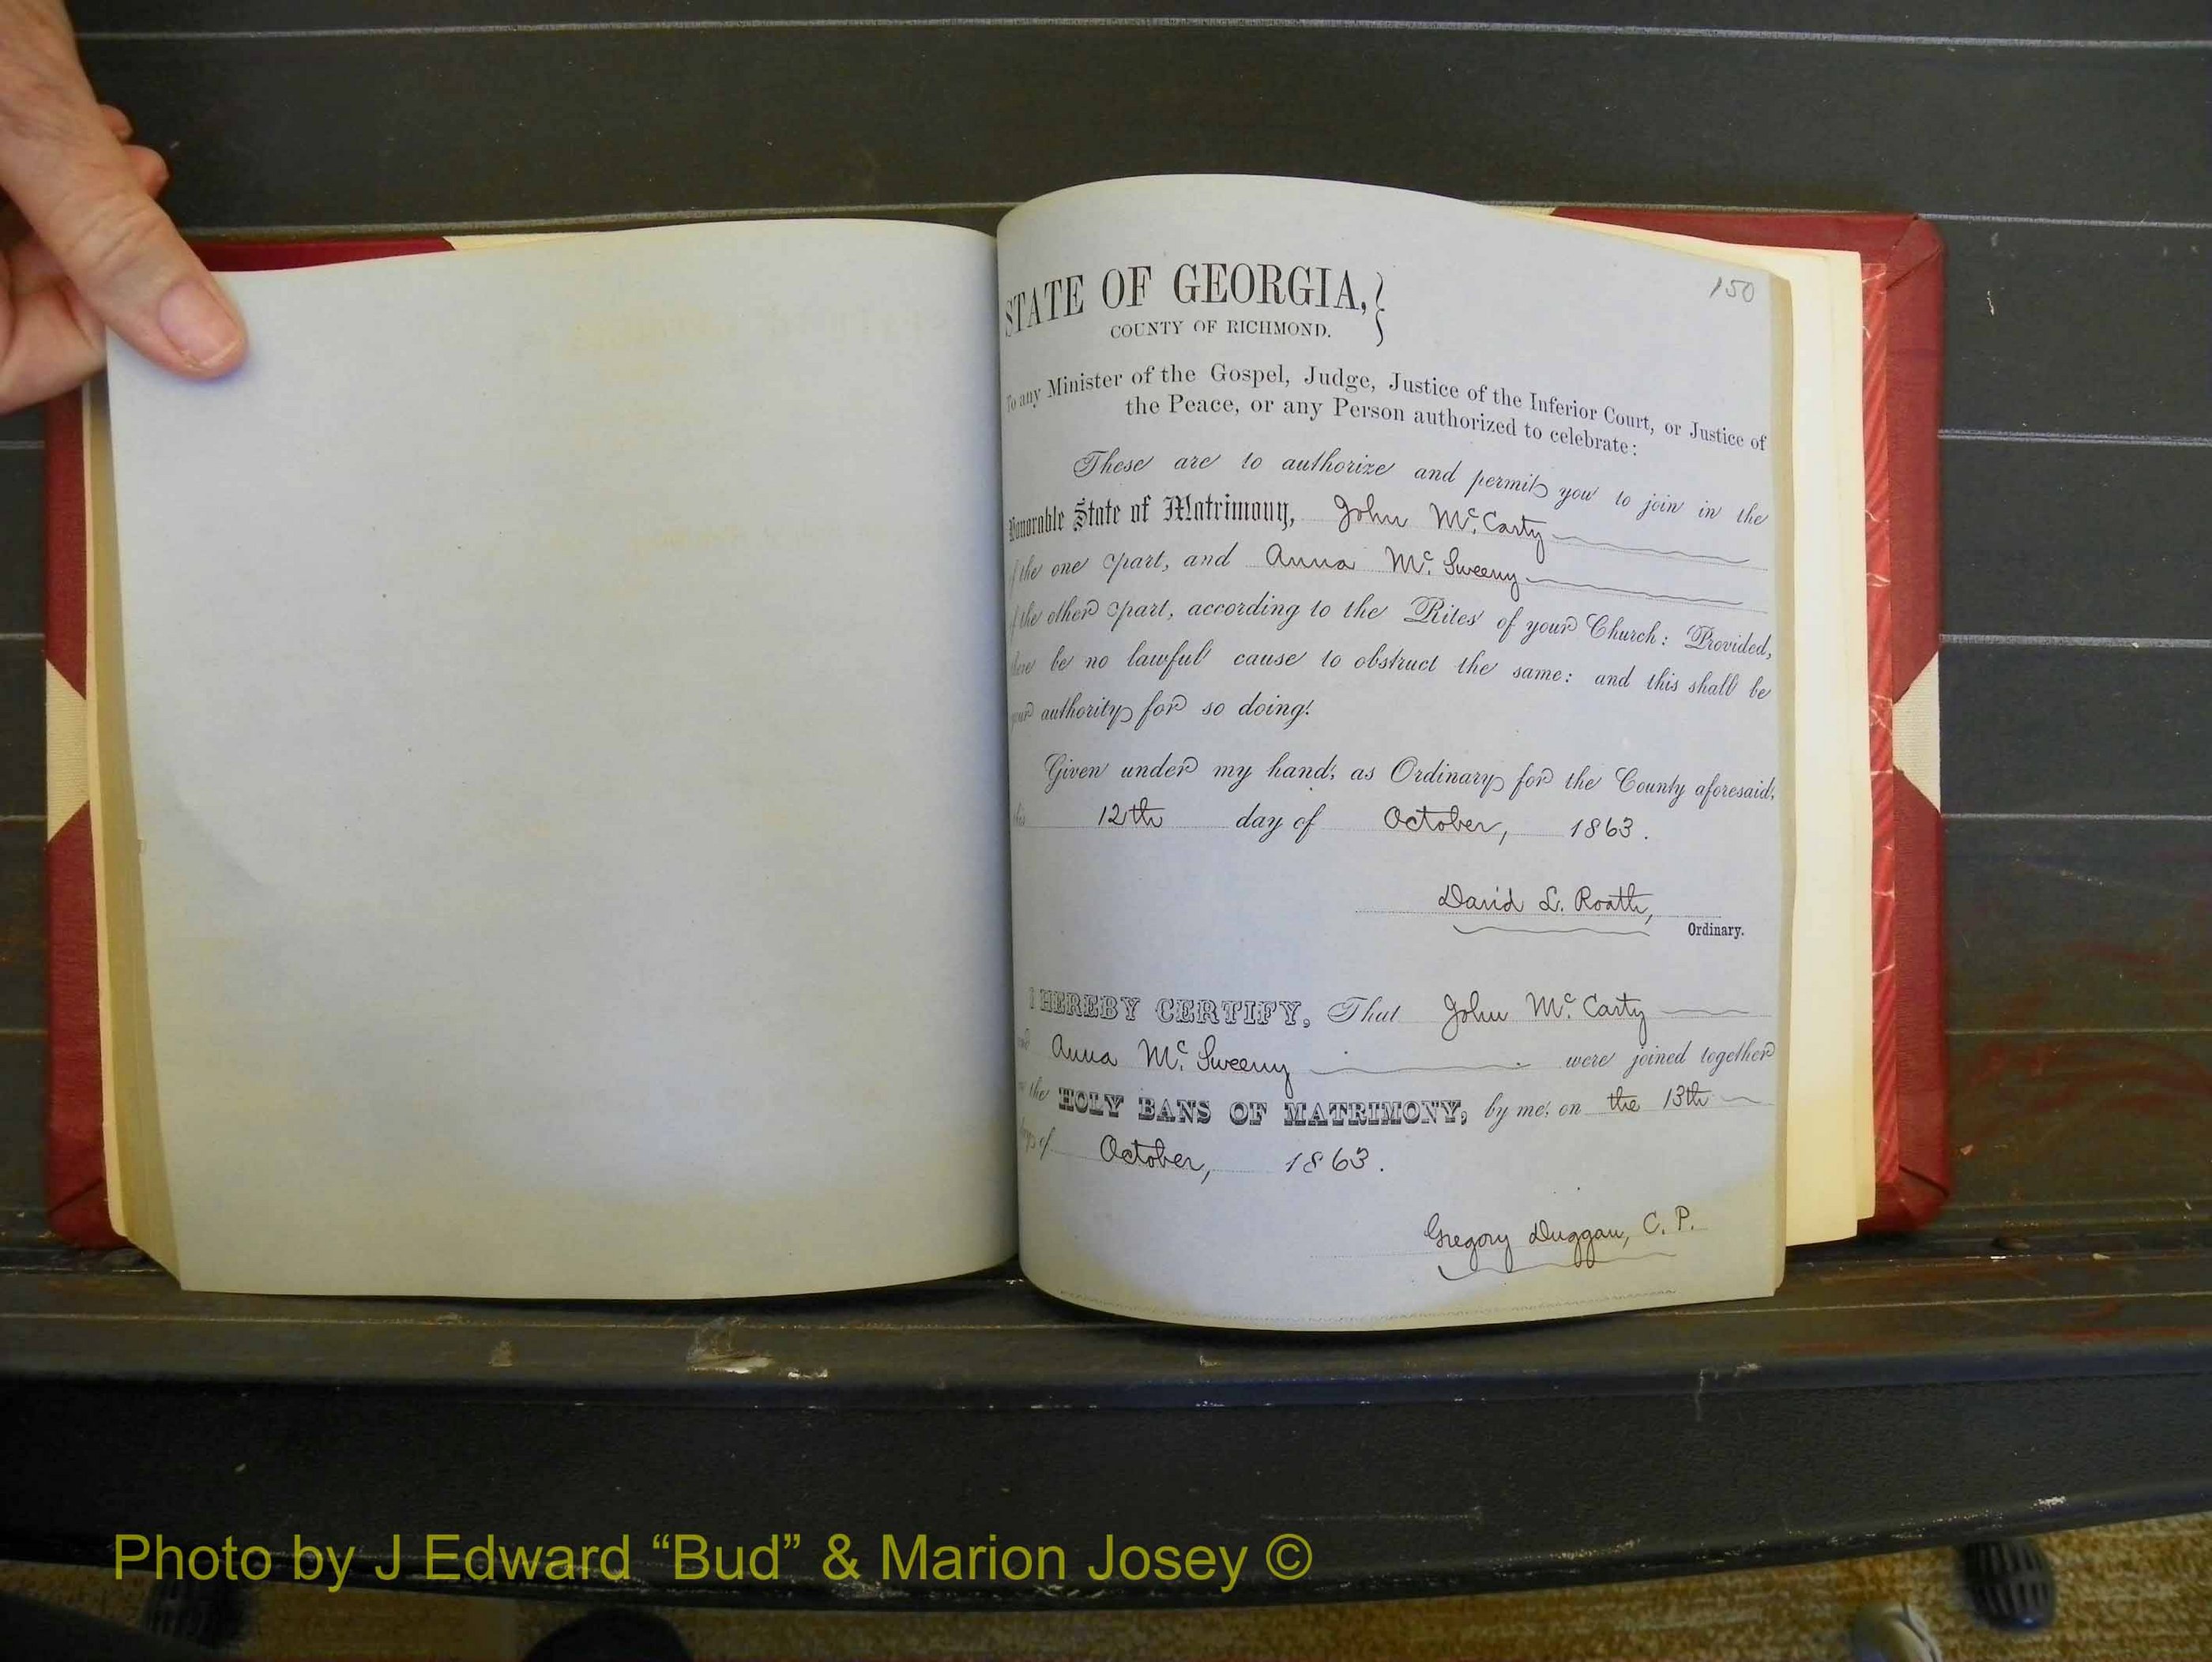 150
STATE OF GEORGIA,
COUNTY OF RICHMOND.
To any Minister of the Gospel, Judge, Justice of the Inferior Court, or Justice of
the Peace, or any Person authorized to celebrate:
These are to authorize and permit you to join in the
Honorable State of Matrimony, John Mc. Carty
of the one part, and Anna Mc. Sweeny
of the other part, according to the Rites of your Church: Provided,
there be no lawful cause to obstruct the same: and this shall be
your authority for so doing.
Given under my hand, as Ordinary for the County aforesaid,
this 12th day of October, 1863.
David L. Roath,
Ordinary.
I HEREBY CERTIFY, That John Mc. Carty
and Anna Mc. Sweeny were joined together
in the HOLY BANS OF MATRIMONY, by me, on the 13th
days of October, 1863.
Gregory Duggan, C. P.
Photo by J Edward “Bud” & Marion Josey ©